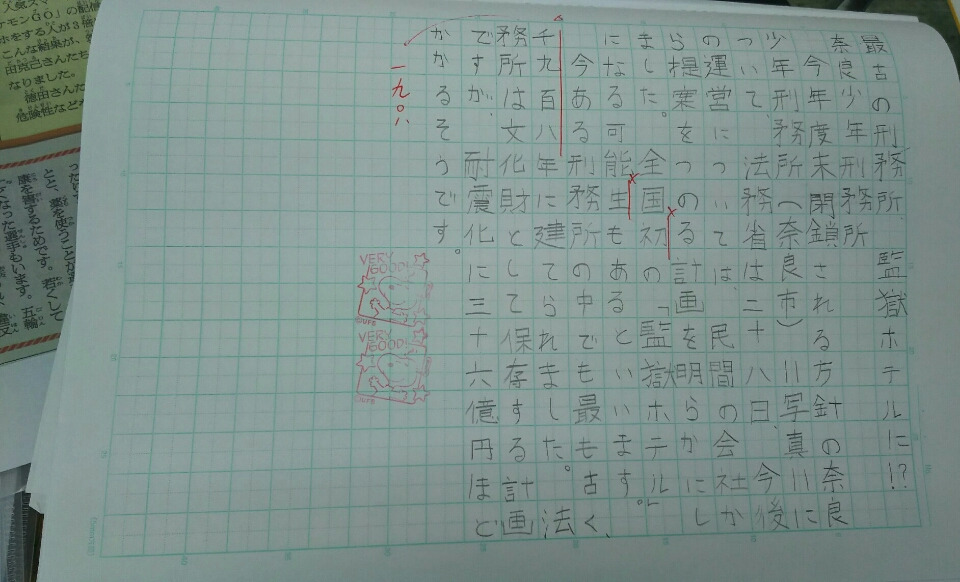 最古の刑務所　監獄ホテルに!?
奈良少年刑務所
今年度末閉鎖される方針の奈良
少年刑務所(奈良市)＝写真＝に
ついて、法務省は二十八日、今後
の運営については、民間の会社か
らの提案をつのる計画を明らかにし
ました。全国初の「監獄ホテル」
になる可能生もあるといいます。
今ある刑務所の中でも最も古く、
千九百八年に建てられました。法
務所は文化財として保存する計画
ですが、耐震化に三十六億円ほど
かかるそうです。
一九〇八
VERY GOOD!
VERY GOOD!
なりました。
徳田さんた
危険性など